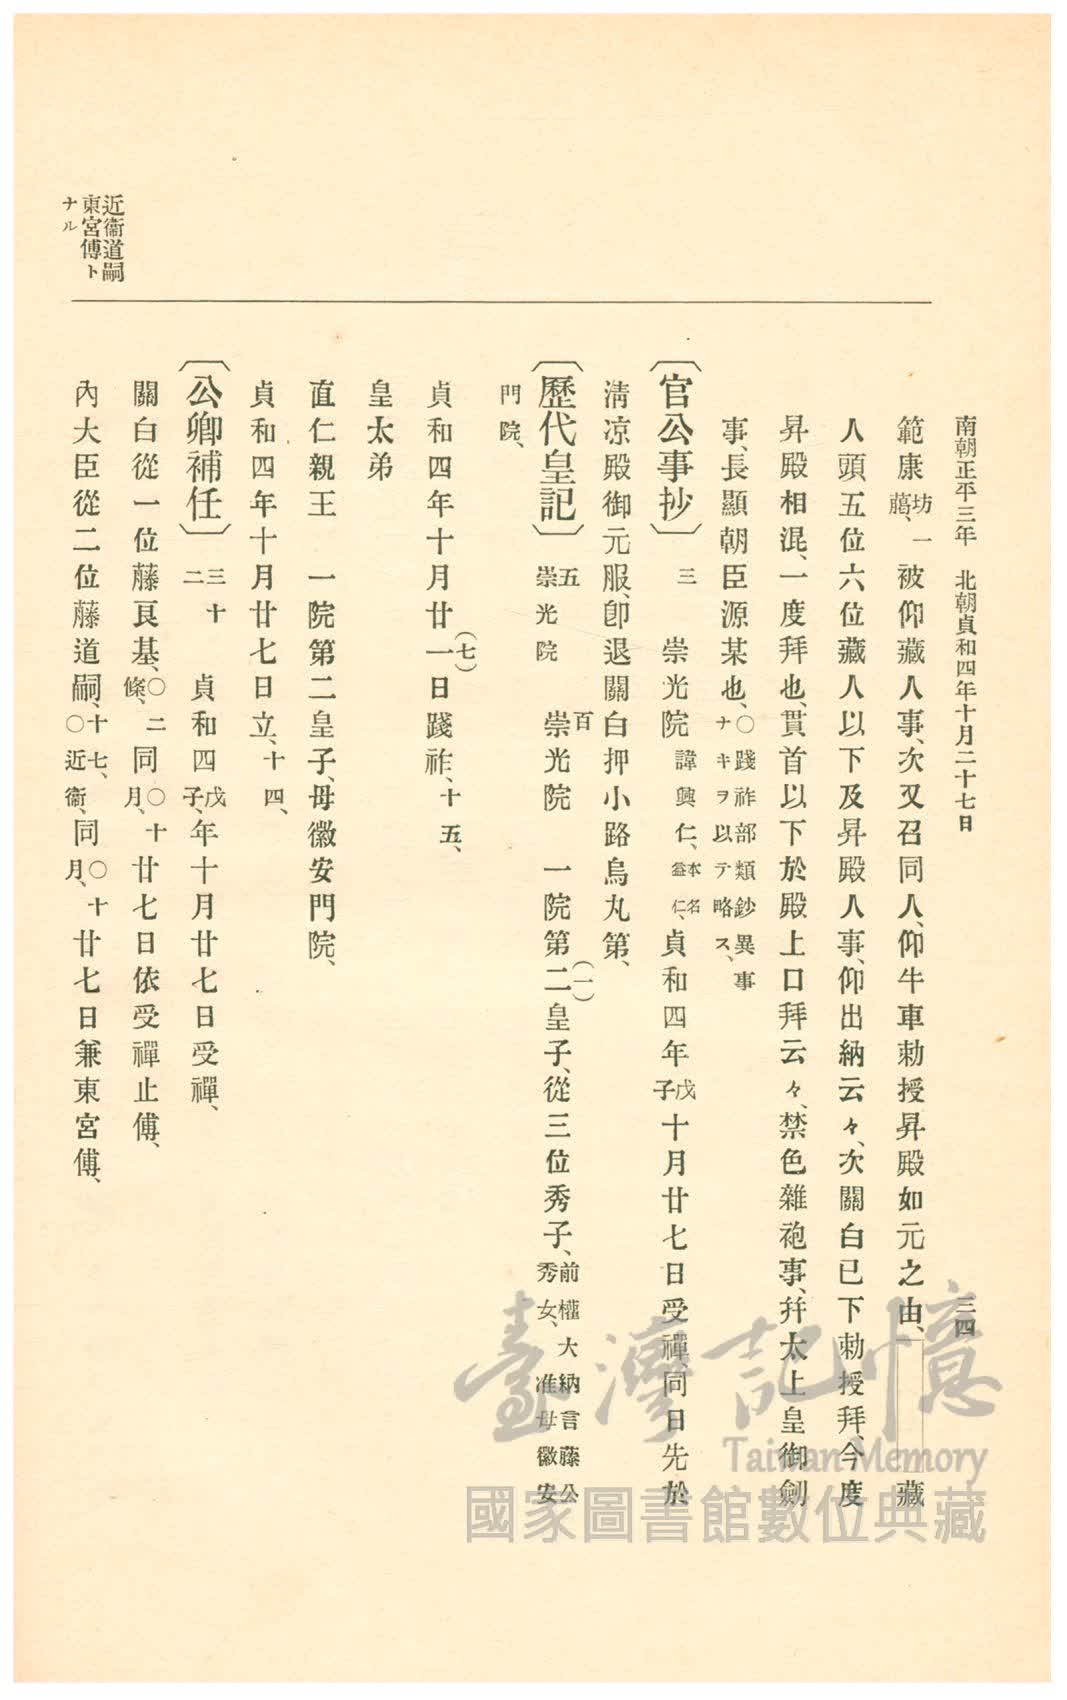 南朝正平三年 北朝貞和四年十月二十七日 三四
範康坊 﨟、一被仰藏人事、次又召同人、仰牛車勅授昇殿如元之由、 藏
人頭五位六位藏人以下及昇殿人事、仰出納云々、次關白已下勅授拜、今度
昇殿相混、一度拜也、貫首以下於殿上口拜云々、禁色雜袍事、幷太上皇御劍
事、長顯朝臣源某也、〇踐祚部類鈔異事ナキヲ以テ略ス、
〔官公事抄〕 三 崇光院 諱興仁、本名益仁、貞和四年戊子十月廿七日受禪、同日先於
淸凉殿御元服、卽退關白押小路烏丸第、
〔歷代皇記〕 五 崇光院 百 崇光院 一院第二(一)皇子、從三位秀子、前權大納言藤公秀女、准母徽安
門院、
貞和四年十月廿一(七)日踐祚、十五、
皇太弟
直仁親王 一院第二皇子、母徽安門院、
貞和四年十月廿七日立、十四、
〔公卿補任〕 三十二 貞和四戊子年十月廿七日受禪、
關白從一位藤良基、〇二條、同〇十月、廿七日依受禪止傅、
內大臣從二位藤道嗣、十七、〇近衞、同〇十月、廿七日兼東宮傅、
近衞道嗣
東宮傅ト
ナル
臺灣記憶
Taiwan Memory
國家圖書館數位典藏